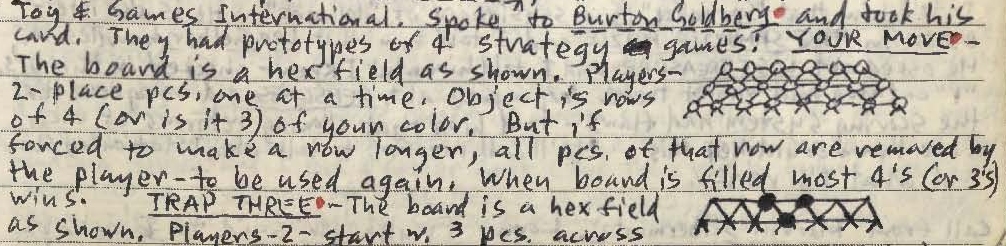 Toy & Games International. Spoke to Burton Goldberg and took his
card. They had prototypes of 4 strategy games: YOUR MOVE -
The board is a hex field as shown. Players-
2- place pcs. one at a time. Object is rows
of 4 (or is it 3) of your color. But if
forced to make a row longer, all pcs. of that row are removed by
the player - to be used again. When board is filled most 4's (or 3's)
wins. TRAP THREE - The board is a hex field
as shown. Players - 2 - start w. 3 pcs. across